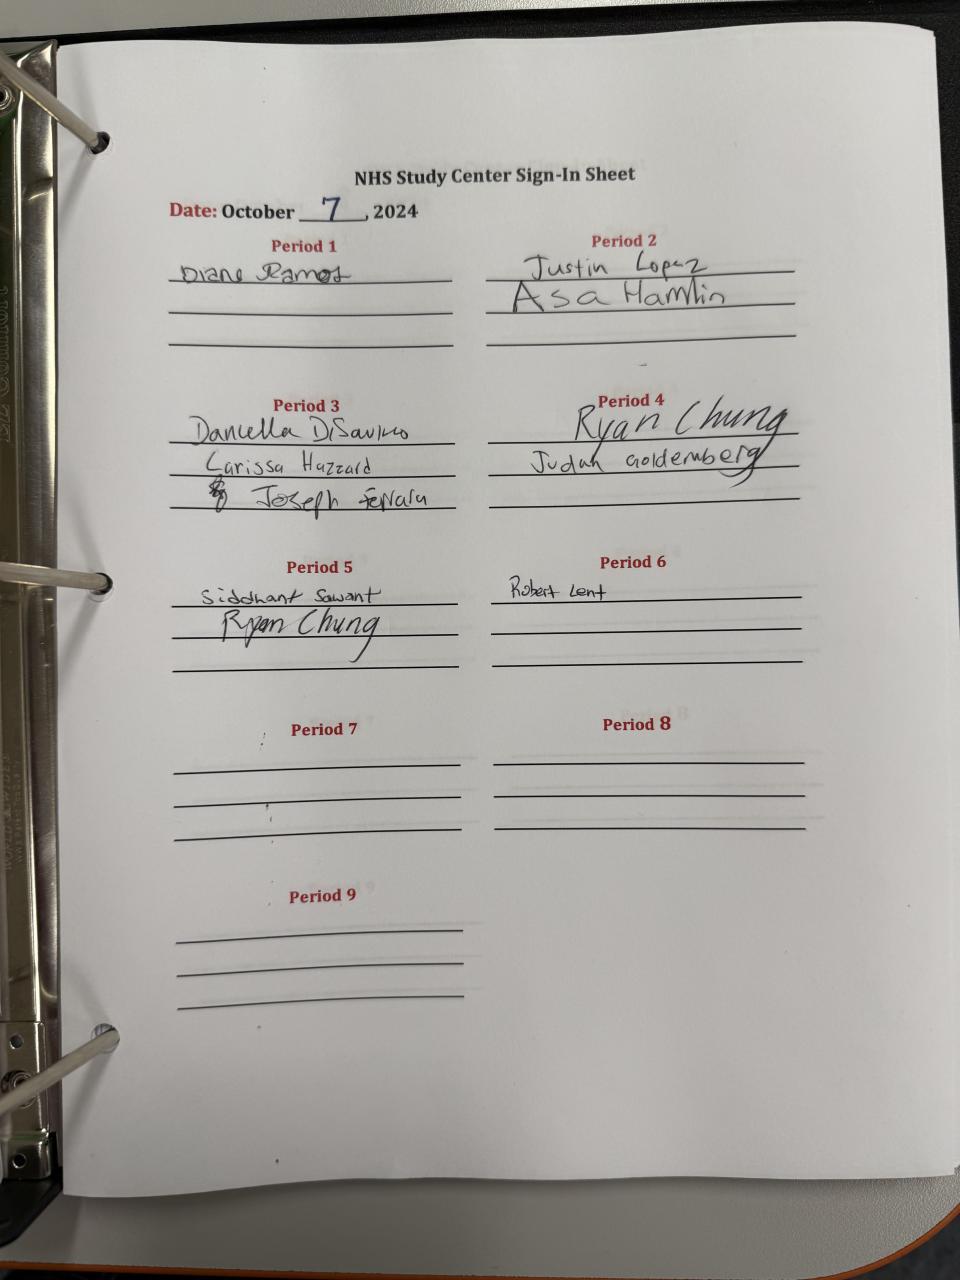 NHS Study Center Sign-In Sheet
Date: October 7, 2024
Period 1
Diane Ramos
Period 2
Justin Lopez
Asa Hamlin
Period 3
Daniella DiSavino
Larissa Hazzard
Joseph Ferrara
Period 4
Ryan Chung
Judah Goldemberg
Period 5
Siddhant Sawant
Ryan Chung
Period 6
Robert Lent
Period 7
Period 8
Period 9